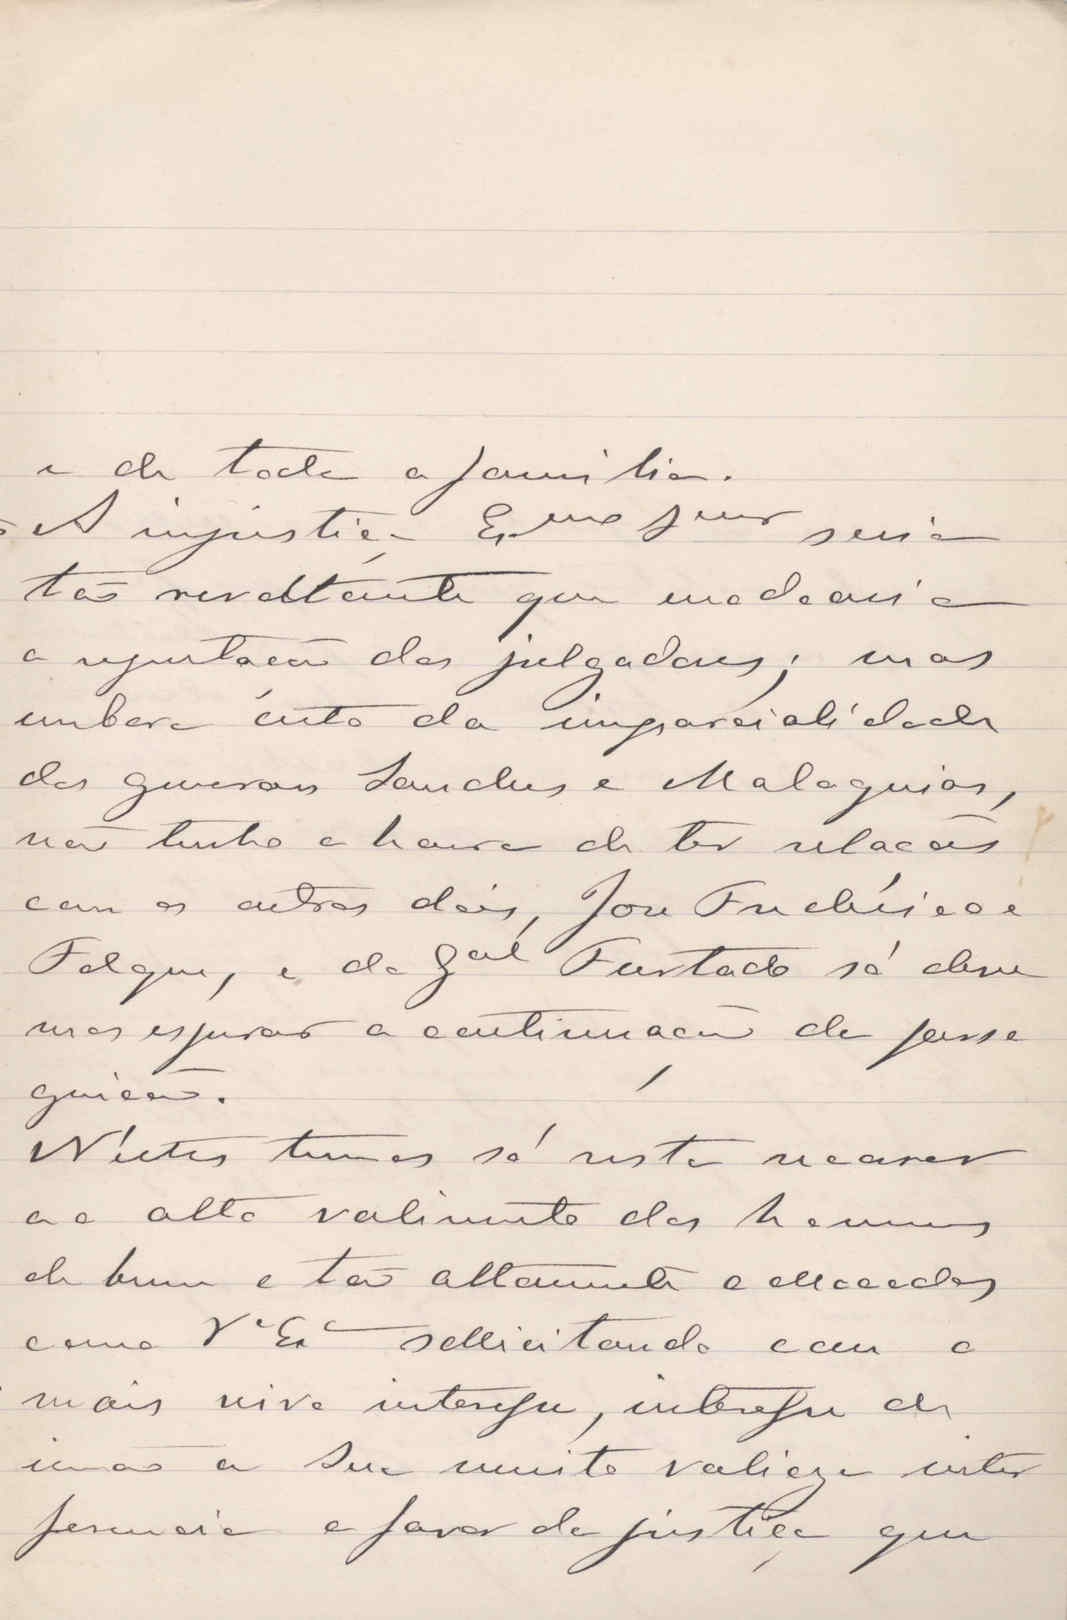 e de toda a familia.
A injustiça Exmo Snr seria
tão revoltante que nodoaria
a reputação dos julgadores; mas
embora certo da imparcialidade
dos generaes Sanches e Malaquias,
não tenho a honra de ter relacões
com os outros dois, José Eusebio e
Folque, e do Gal Furtado só deve
mos esperar a continuacão da perse
guicão.
N'estes termos só resta recorrer
ao alto valimento dos homens
de bem e tão altamente collocados
como Va Exa sollicitando com o
mais vivo interesse, interesse de
irmão a sua muito valioza inter
ferencia a favor da justiça que